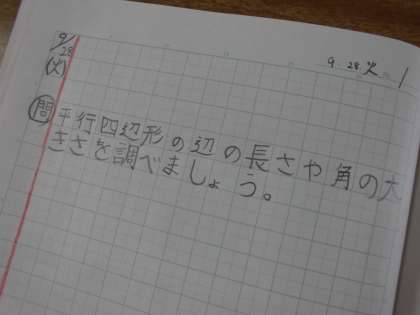 9/28
(火)
9.28.火 1
問 平行四辺形の辺の長さや角の大
きさを調べましょう。